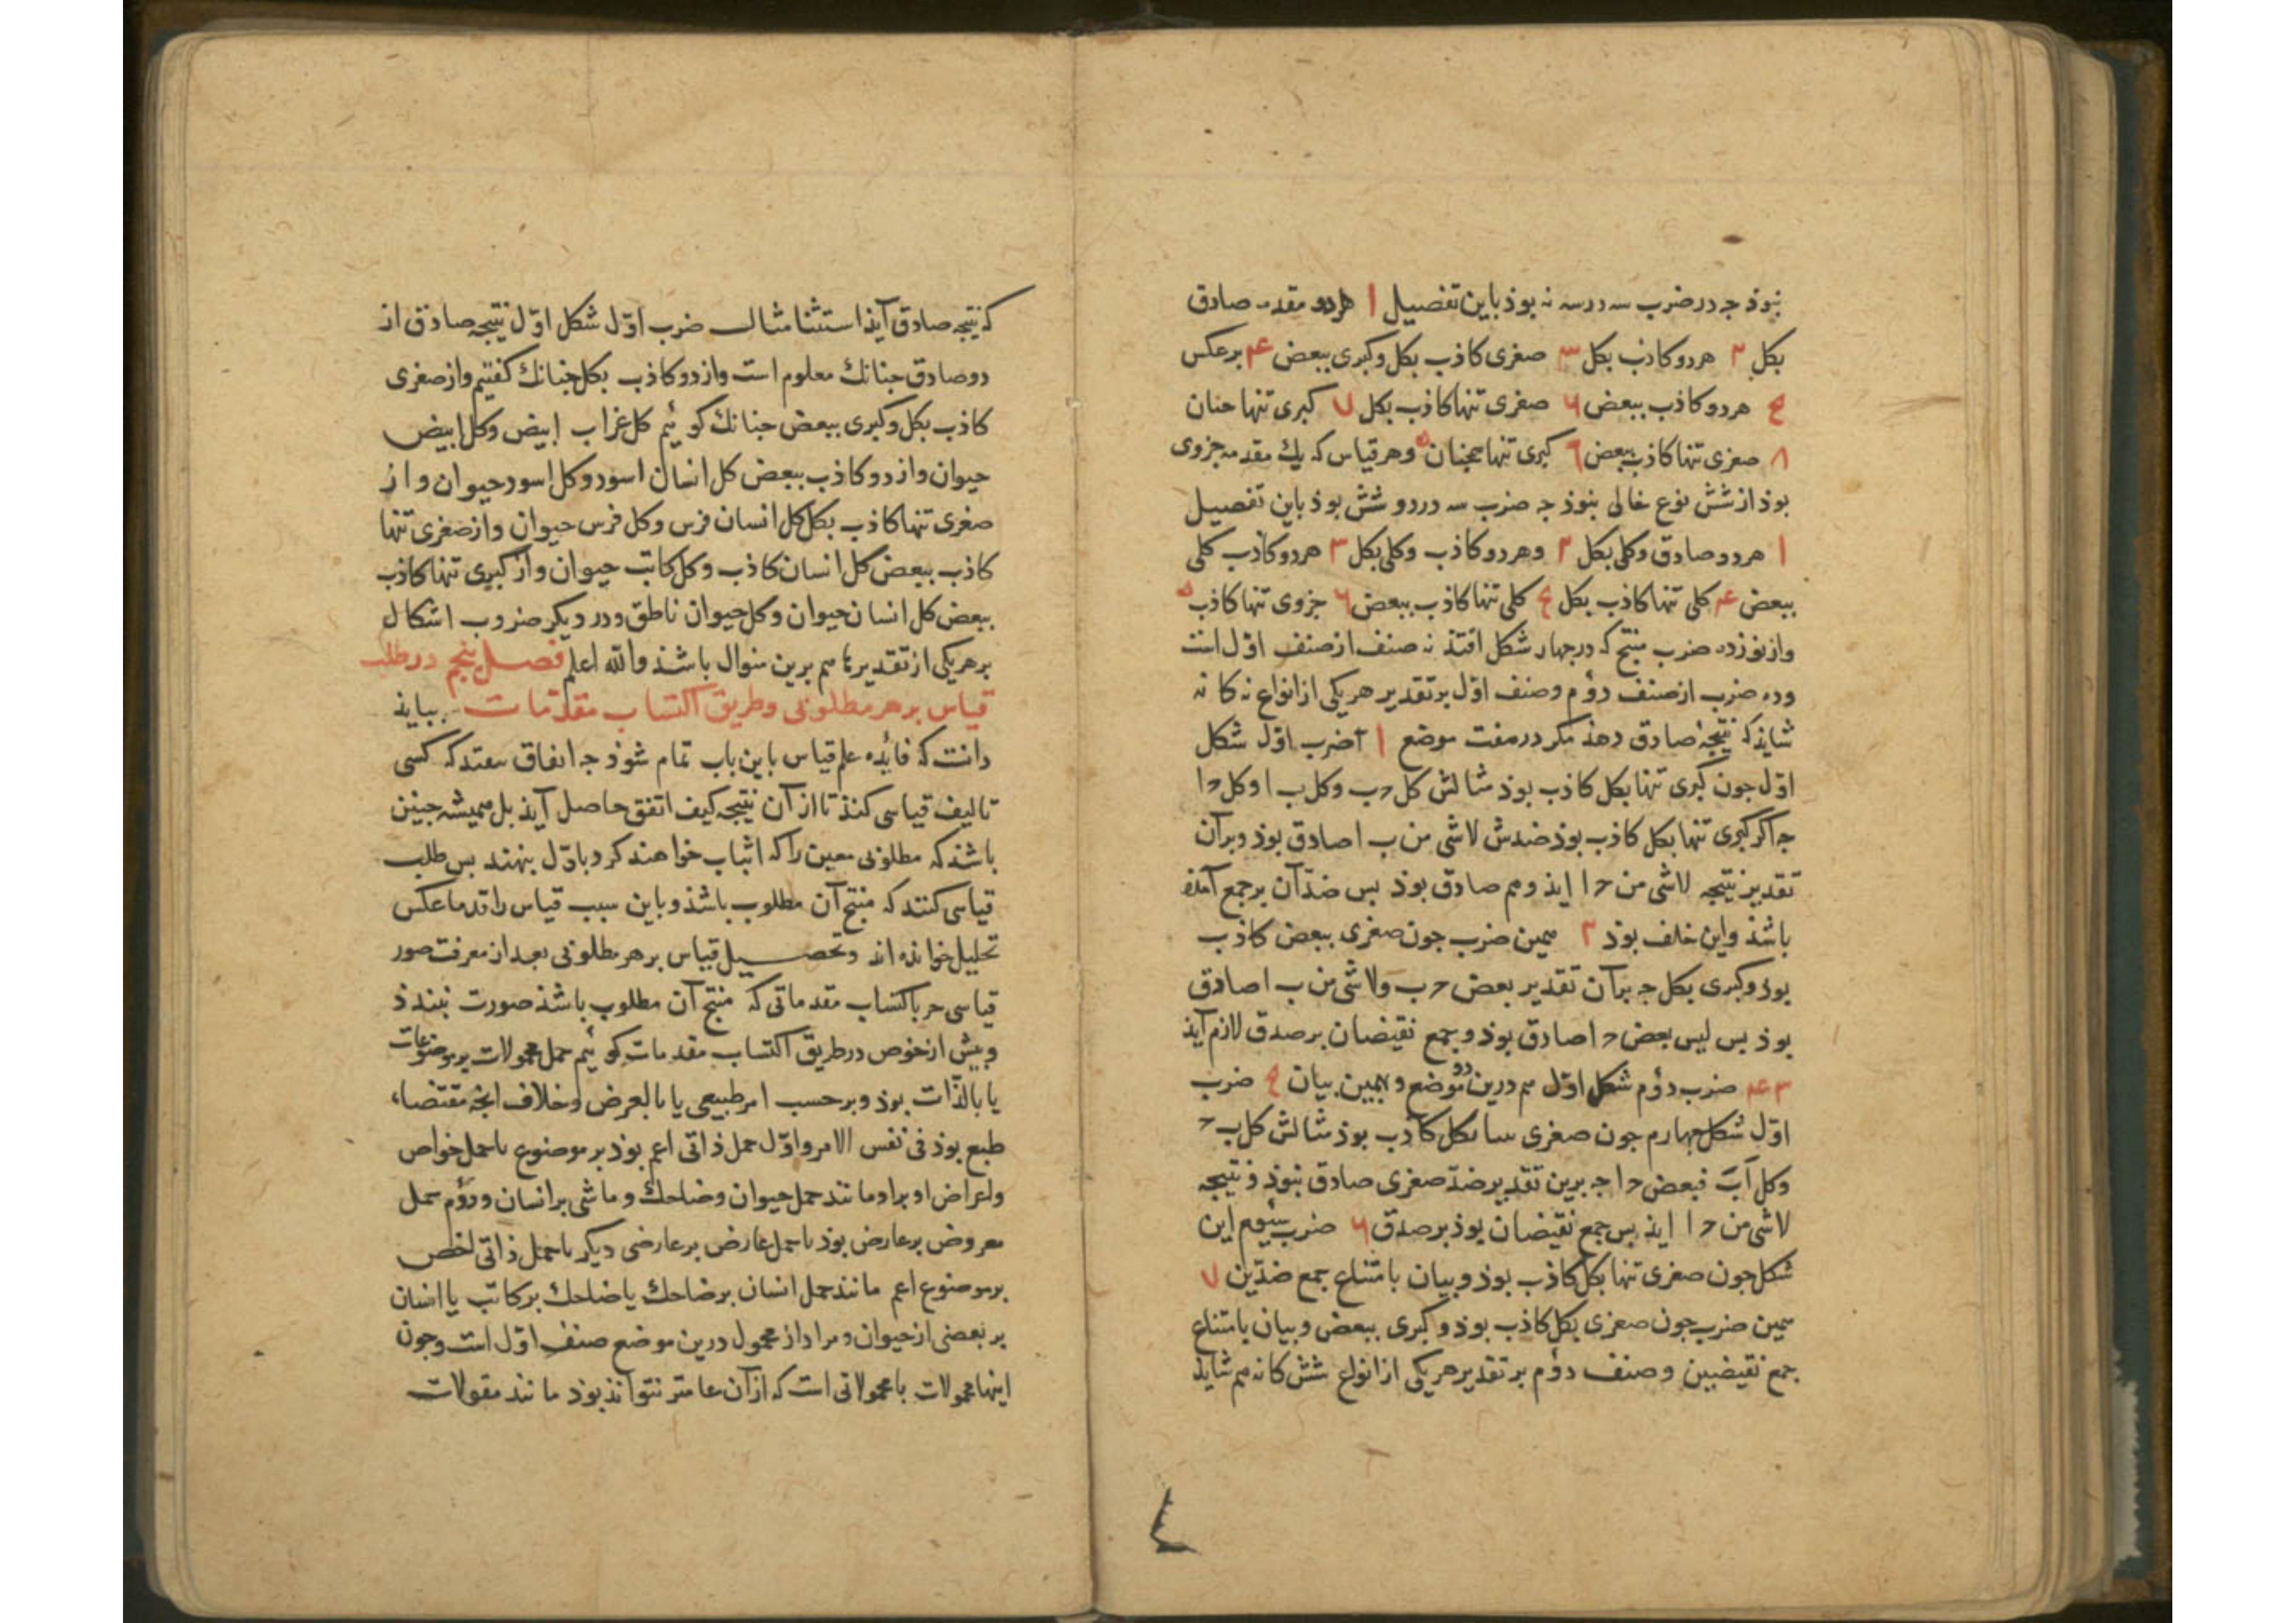 نبوذ جه در ضرب سه در سه نه بوذ باین تفصیل ۱ هر دو مقدمه صادق
بکل ۲ هر دو کاذب بکل ۳ صغری کاذب بکل وکبری ببعض ۴ برعکس
۵ هر دو کاذب ببعض ۶ صغری تنها کاذب بکل ۷ کبری تنها جنان
۸ صغری تنها کاذب ببعض ۹ کبری تنها همجنان وهر قیاس که یك مقدمه جزوی
بوذ از شش نوع خالی نبوذ جه ضرب سه در دو شش بوذ باین تفصیل
۱ هر دو صادق وکلی بکل ۲ وهر دو کاذب وکلی بکل ۳ هر دو کاذب کلی
ببعض ۴ کلی تنها کاذب بکل ۵ کلی تنها کاذب ببعض ۶ جزوی تنها کاذب
واز نوزده ضرب منتج که در جهار شکل افتذ نه صنف از صنف اول است
وده ضرب از صنف دوم وصنف اول بر تقدیر هر یکی از انواع نه کانه
شایذ که نتیجه صادق دهذ مکر در هفت موضع ۱ آ ضرب اول شکل
اول جون کبری تنها بکل کاذب بوذ مثالش کل ح ب وکل ب ا وکل ح ا
جه اکر کبری تنها بکل کاذب بوذ ضدش لاشی من ب ا صادق بوذ وبر آن
تقدیر نتیجه لاشی من ح ا ایذ وهم صادق بوذ بس ضد آن بر جمع آمذه
باشذ واین خلف بوذ ۲ همین ضرب جون صغری ببعض کاذب
بوذ وکبری بکل جه بر آن تقدیر بعض ح ب ولاشی من ب ا صادق
بوذ بس لیس بعض ح ا صادق بوذ وجمع نقیضان بر صدق لازم آیذ
۳ ۴ ضرب دوم شکل اول هم درین دو موضع وبهمین بیان ۵ ضرب
اول شکل جهارم جون صغری تنها بکل کاذب بوذ مثالش کل ب ح
وکل اب فبعض ح ا جه برین تقدیر ضد صغری صادق بنوذ ونتیجه
لاشی من ح ا ایذ بس جمع نقیضان بوذ بر صدق ۶ ضرب سیوم این
شکل جون صغری تنها بکل کاذب بوذ وبیان بامتناع جمع ضدین ۷
همین ضرب جون صغری بکل کاذب بوذ وکبری ببعض وبیان بامتناع
جمع نقیضین وصنف دوم بر تقدیر هر یکی از انواع شش کانه هم شایذ
که نتیجه صادق آیذ استثنا مثال ضرب اول شکل اول نتیجه صادق از
دو صادق جنانك معلوم است واز دو کاذب بکل جنانك کفتیم واز صغری
کاذب بکل وکبری ببعض جنانك کوئیم کل غراب ابیض وکل ابیض
حیوان واز دو کاذب ببعض کل انسان اسود وکل اسود حیوان واز
صغری تنها کاذب بکل کل انسان فرس وکل فرس حیوان واز صغری تنها
کاذب ببعض کل انسان کاذب وکل کاتب حیوان واز کبری تنها کاذب
ببعض کل انسان حیوان وکل حیوان ناطق ودر دیکر ضروب اشکال
بر هر یکی از تقدیرها هم برین منوال باشذ والله اعلم فصل پنجم در طلب
قیاس بر هر مطلوبی وطریق اکتساب مقدمات ببایذ
دانست که فایده علم قیاس باین باب تمام شوذ جه اتفاق نیفتد که کسی
تالیف قیاسی کنذ تا از آن نتیجه کیف اتفق حاصل آیذ بل همیشه جنین
باشذ که مطلوبی معین را که اثبات خواهند کرد باول بنهند بس طلب
قیاسی کنند که منتج آن مطلوب باشذ وباین سبب قیاس را قدما عکس
تحلیل خوانده اند وتحصیل قیاس بر هر مطلوبی بعد از معرفت صور
قیاسی جز باکتساب مقدماتی که منتج آن مطلوب باشذ صورت نبندذ
وبیش از خوض در طریق اکتساب مقدمات کوئیم حمل محمولات بر موضوعات
یا بالذات بوذ وبر حسب امر طبیعی یا بالعرض وخلاف انجه مقتضاء
طبع بوذ فی نفس الامر واول حمل ذاتی اعم بوذ بر موضوع یا حمل خواص
واعراض او برا و مانند حمل حیوان وضاحك وماشی بر انسان ودوم حمل
معروض بر عارض بوذ یا حمل عارض بر عارضی دیکر یا حمل ذاتی اخص
بر موضوع اعم مانند حمل انسان بر ضاحك یا ضاحك بر کاتب یا انسان
بر بعضی از حیوان ومراد از محمول درین موضع صنف اول است وجون
اینها محمولات با محمولاتی است که از آن عامتر نتواند بوذ مانند مقولات